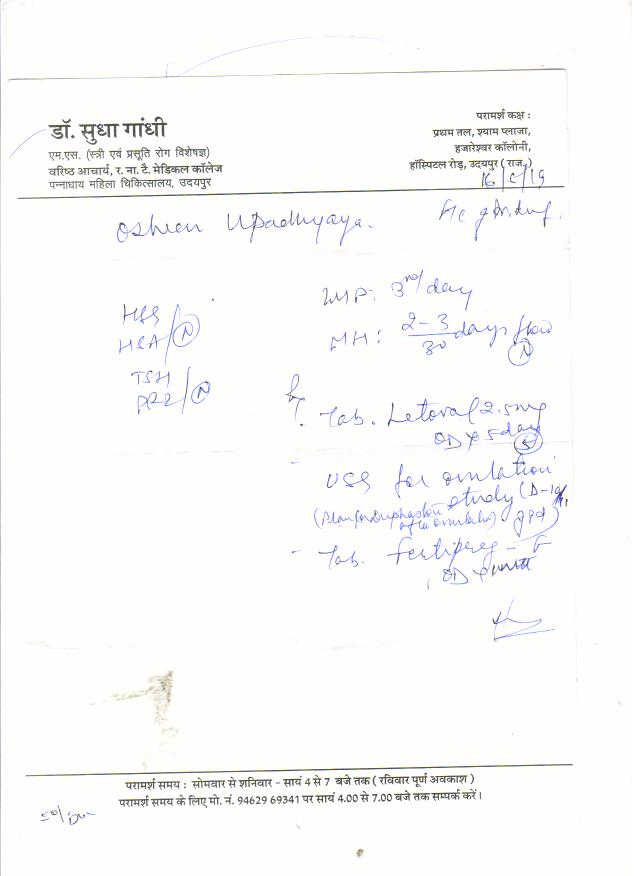 डॉ. सुधा गांधी
एम.एस. (स्त्री एवं प्रसूति रोग विशेषज्ञ)
वरिष्ठ आचार्य, र. ना. टै. मेडिकल कॉलेज
पन्नाधाय महिला चिकित्सालय, उदयपुर
परामर्श कक्ष :
प्रथम तल, श्याम प्लाजा,
हजारेश्वर कॉलोनी,
हॉस्पिटल रोड़, उदयपुर ( राज.)
Oshien Upadhyaya.
LMP: 3rd day
MH: 2-3/30 days flow
N
HSG
HSA / N
TSH
PRL / N
Tab. Letoval 2.5mg
OD x 5 day
5
USG for ovulation
study (D-10/11
(Plan for Duphaston
after ovulation)
- Tab. Fertipreg - F
OD x
परामर्श समय : सोमवार से शनिवार - सायं 4 से 7 बजे तक ( रविवार पूर्ण अवकाश )
परामर्श समय के लिए मो. नं. 94629 69341 पर सायं 4.00 से 7.00 बजे तक सम्पर्क करें।